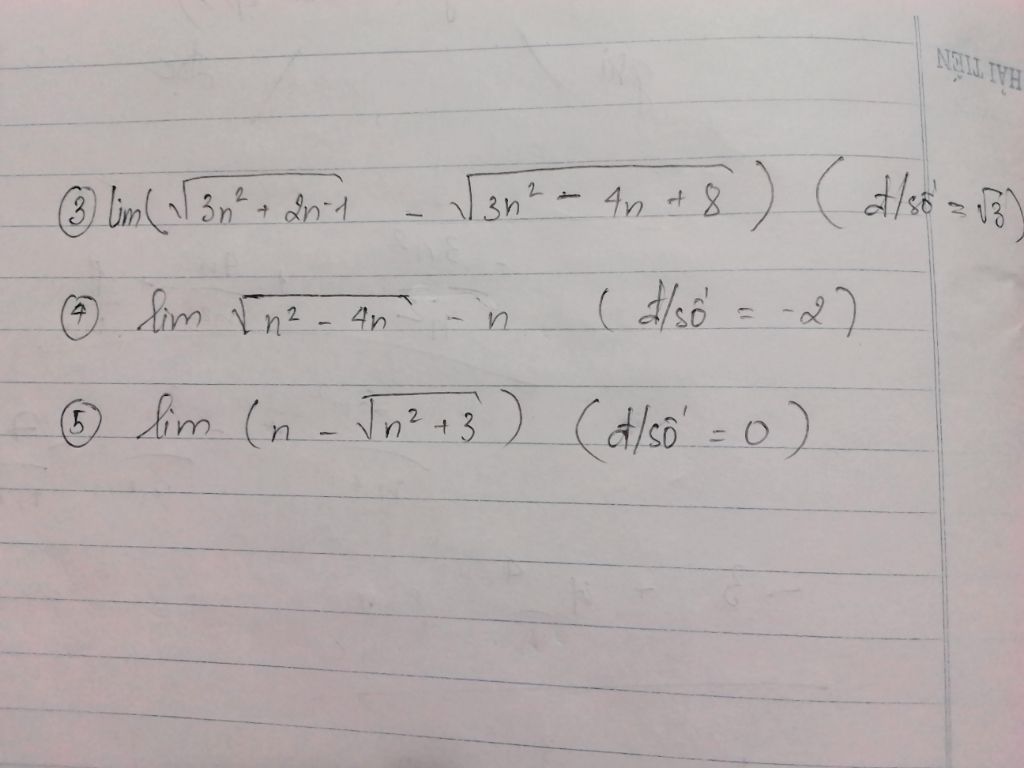 HẢI TIẾN
③ lim(√(3n² + 2n-1) - √(3n² - 4n + 8)) (đ/số = √3)
④ lim √(n² - 4n) - n (đ/số = -2)
⑤ lim (n - √(n² + 3)) (đ/số = 0)